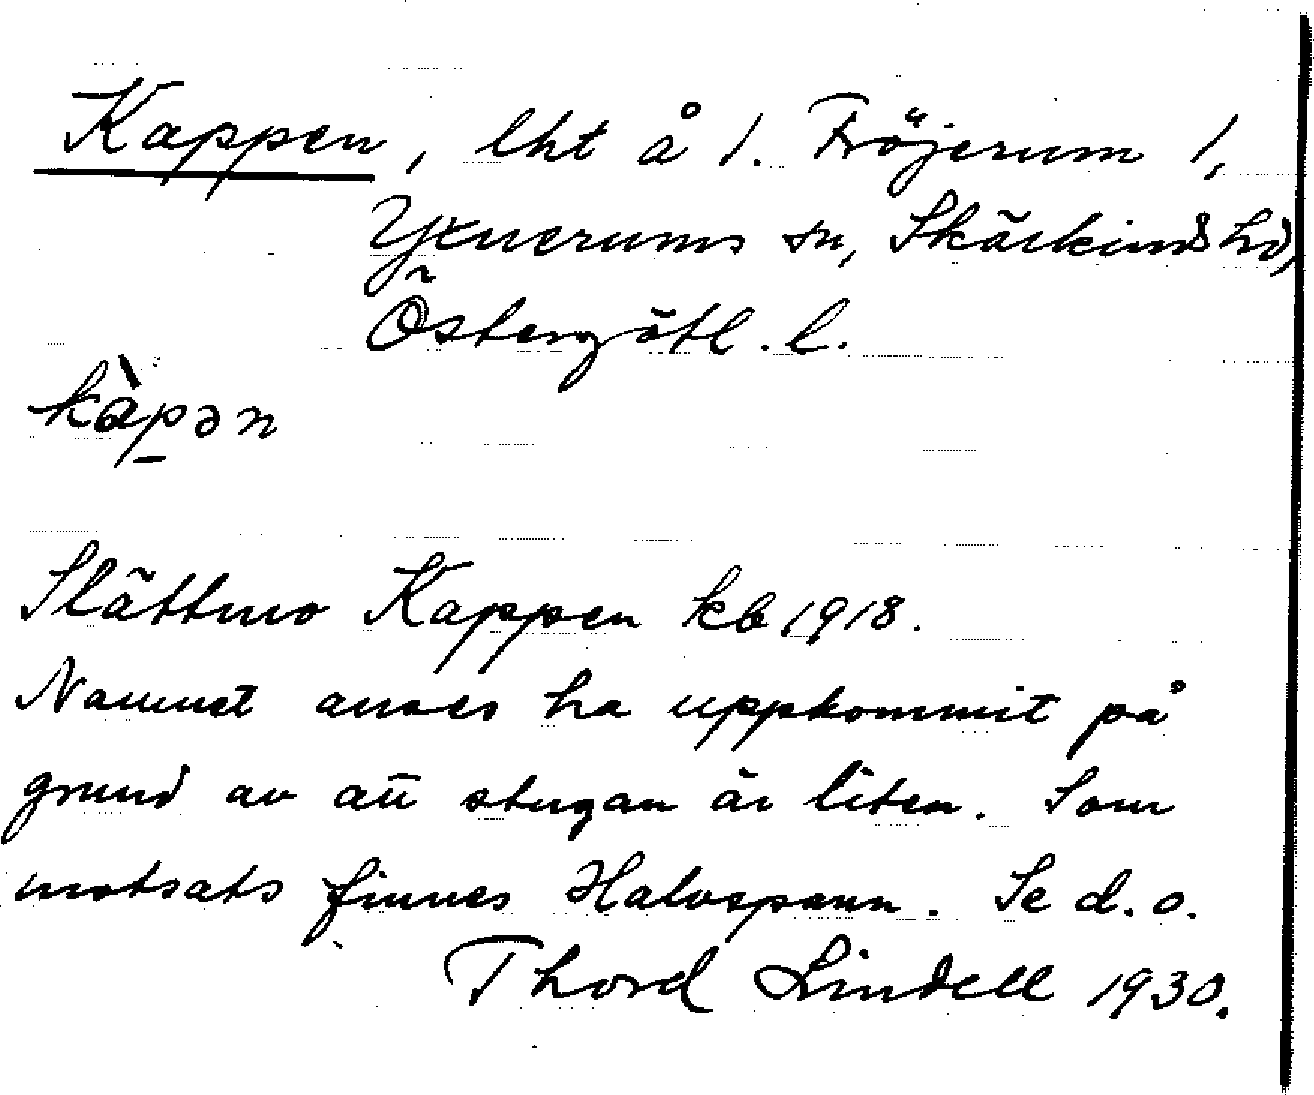 Kappen, lht å 1. Fröjerum 1,
Yxnerums sn, Skärkinds hd,
Östergötl. l.
kàpən
Slättmo Kappen kb 1918.
Namnet anses ha uppkommit på
grund av att stugan är liten. Som
motsats finnes Halvspann. Se d. o.
Thord Lindell 1930.